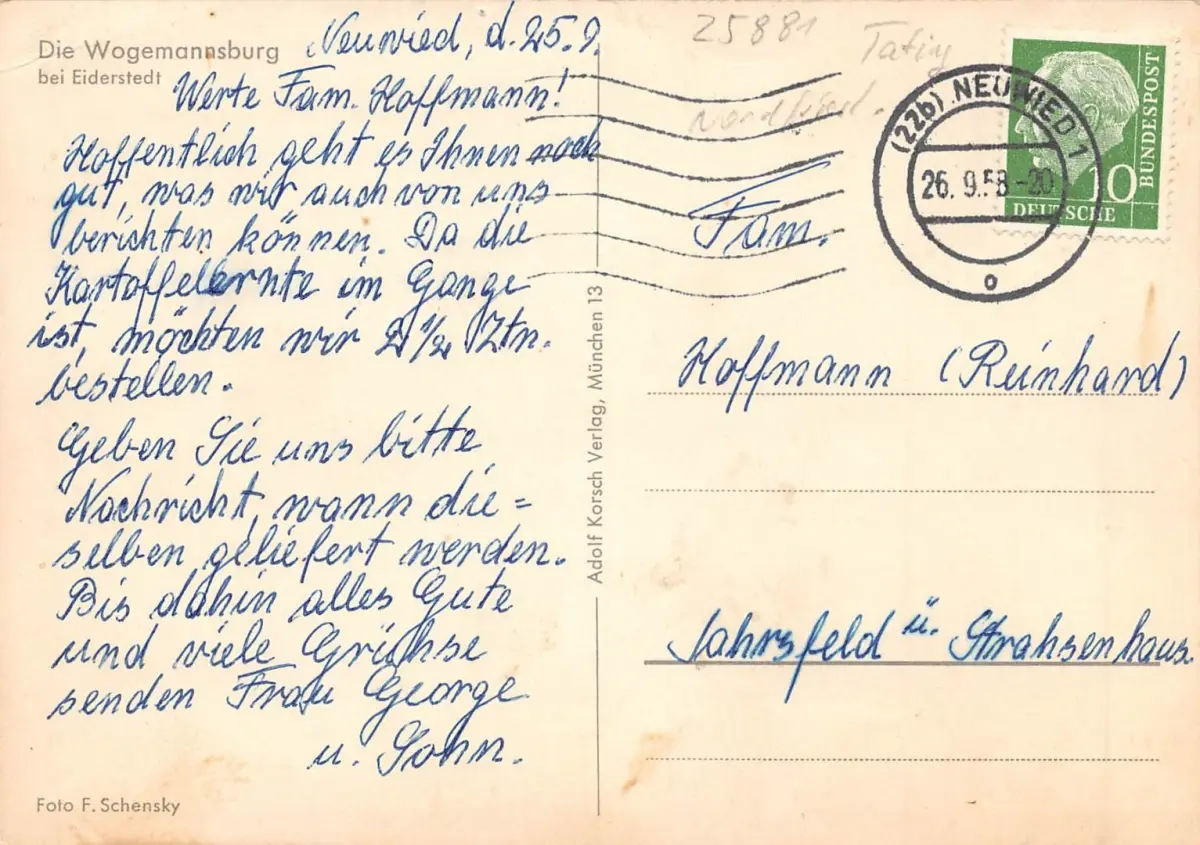 Die Wogemannsburg
bei Eiderstedt
Neuwied, d. 25.9.
Werte Fam. Hoffmann!
Hoffentlich geht es Ihnen noch
gut, was wir auch von uns
berichten können. Da die
Kartoffelernte im Gange
ist, möchten wir 2 1/2 Ztn.
bestellen.
Geben Sie uns bitte
Nachricht, wann die=
selben geliefert werden.
Bis dahin alles Gute
und viele Grühse
senden Frau George
u. Sohn.
Foto F. Schensky
Adolf Korsch Verlag, München 13
25881
Tating
Nordfriesl.
(22b) NEUWIED 1
26. 9.58-20
o
10
DEUTSCHE
BUNDESPOST
Fam.
Hoffmann (Reinhard)
Jahrsfeld ü. Strahsenhaus.